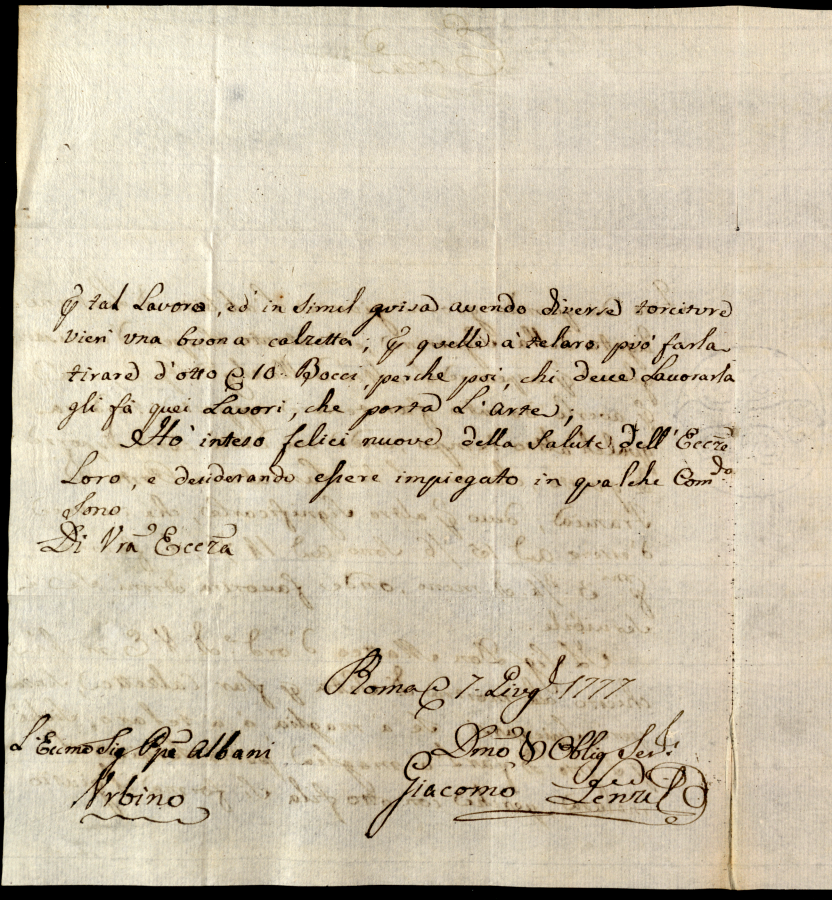 ꝑ tal Lavoro, ed' in simil guisa avendo diverse torciture
vieri una buona calzetta; ꝑ quelle a' telaro può farla
tirare d'otto e 10. Bocci, perche poi, chi deve Lavorarla
gli fà quei Lavori, che porta L'arte;
Hò inteso felici nuove della Salute dell'Eccze
Loro, e desiderando essere impiegato in qualche Comdo
Sono
Di Vra Eccza
Roma 7. 1777
L'Eccmo Sig Ppe Albani
Dmo Oblig Ser
Urbino
Giacomo